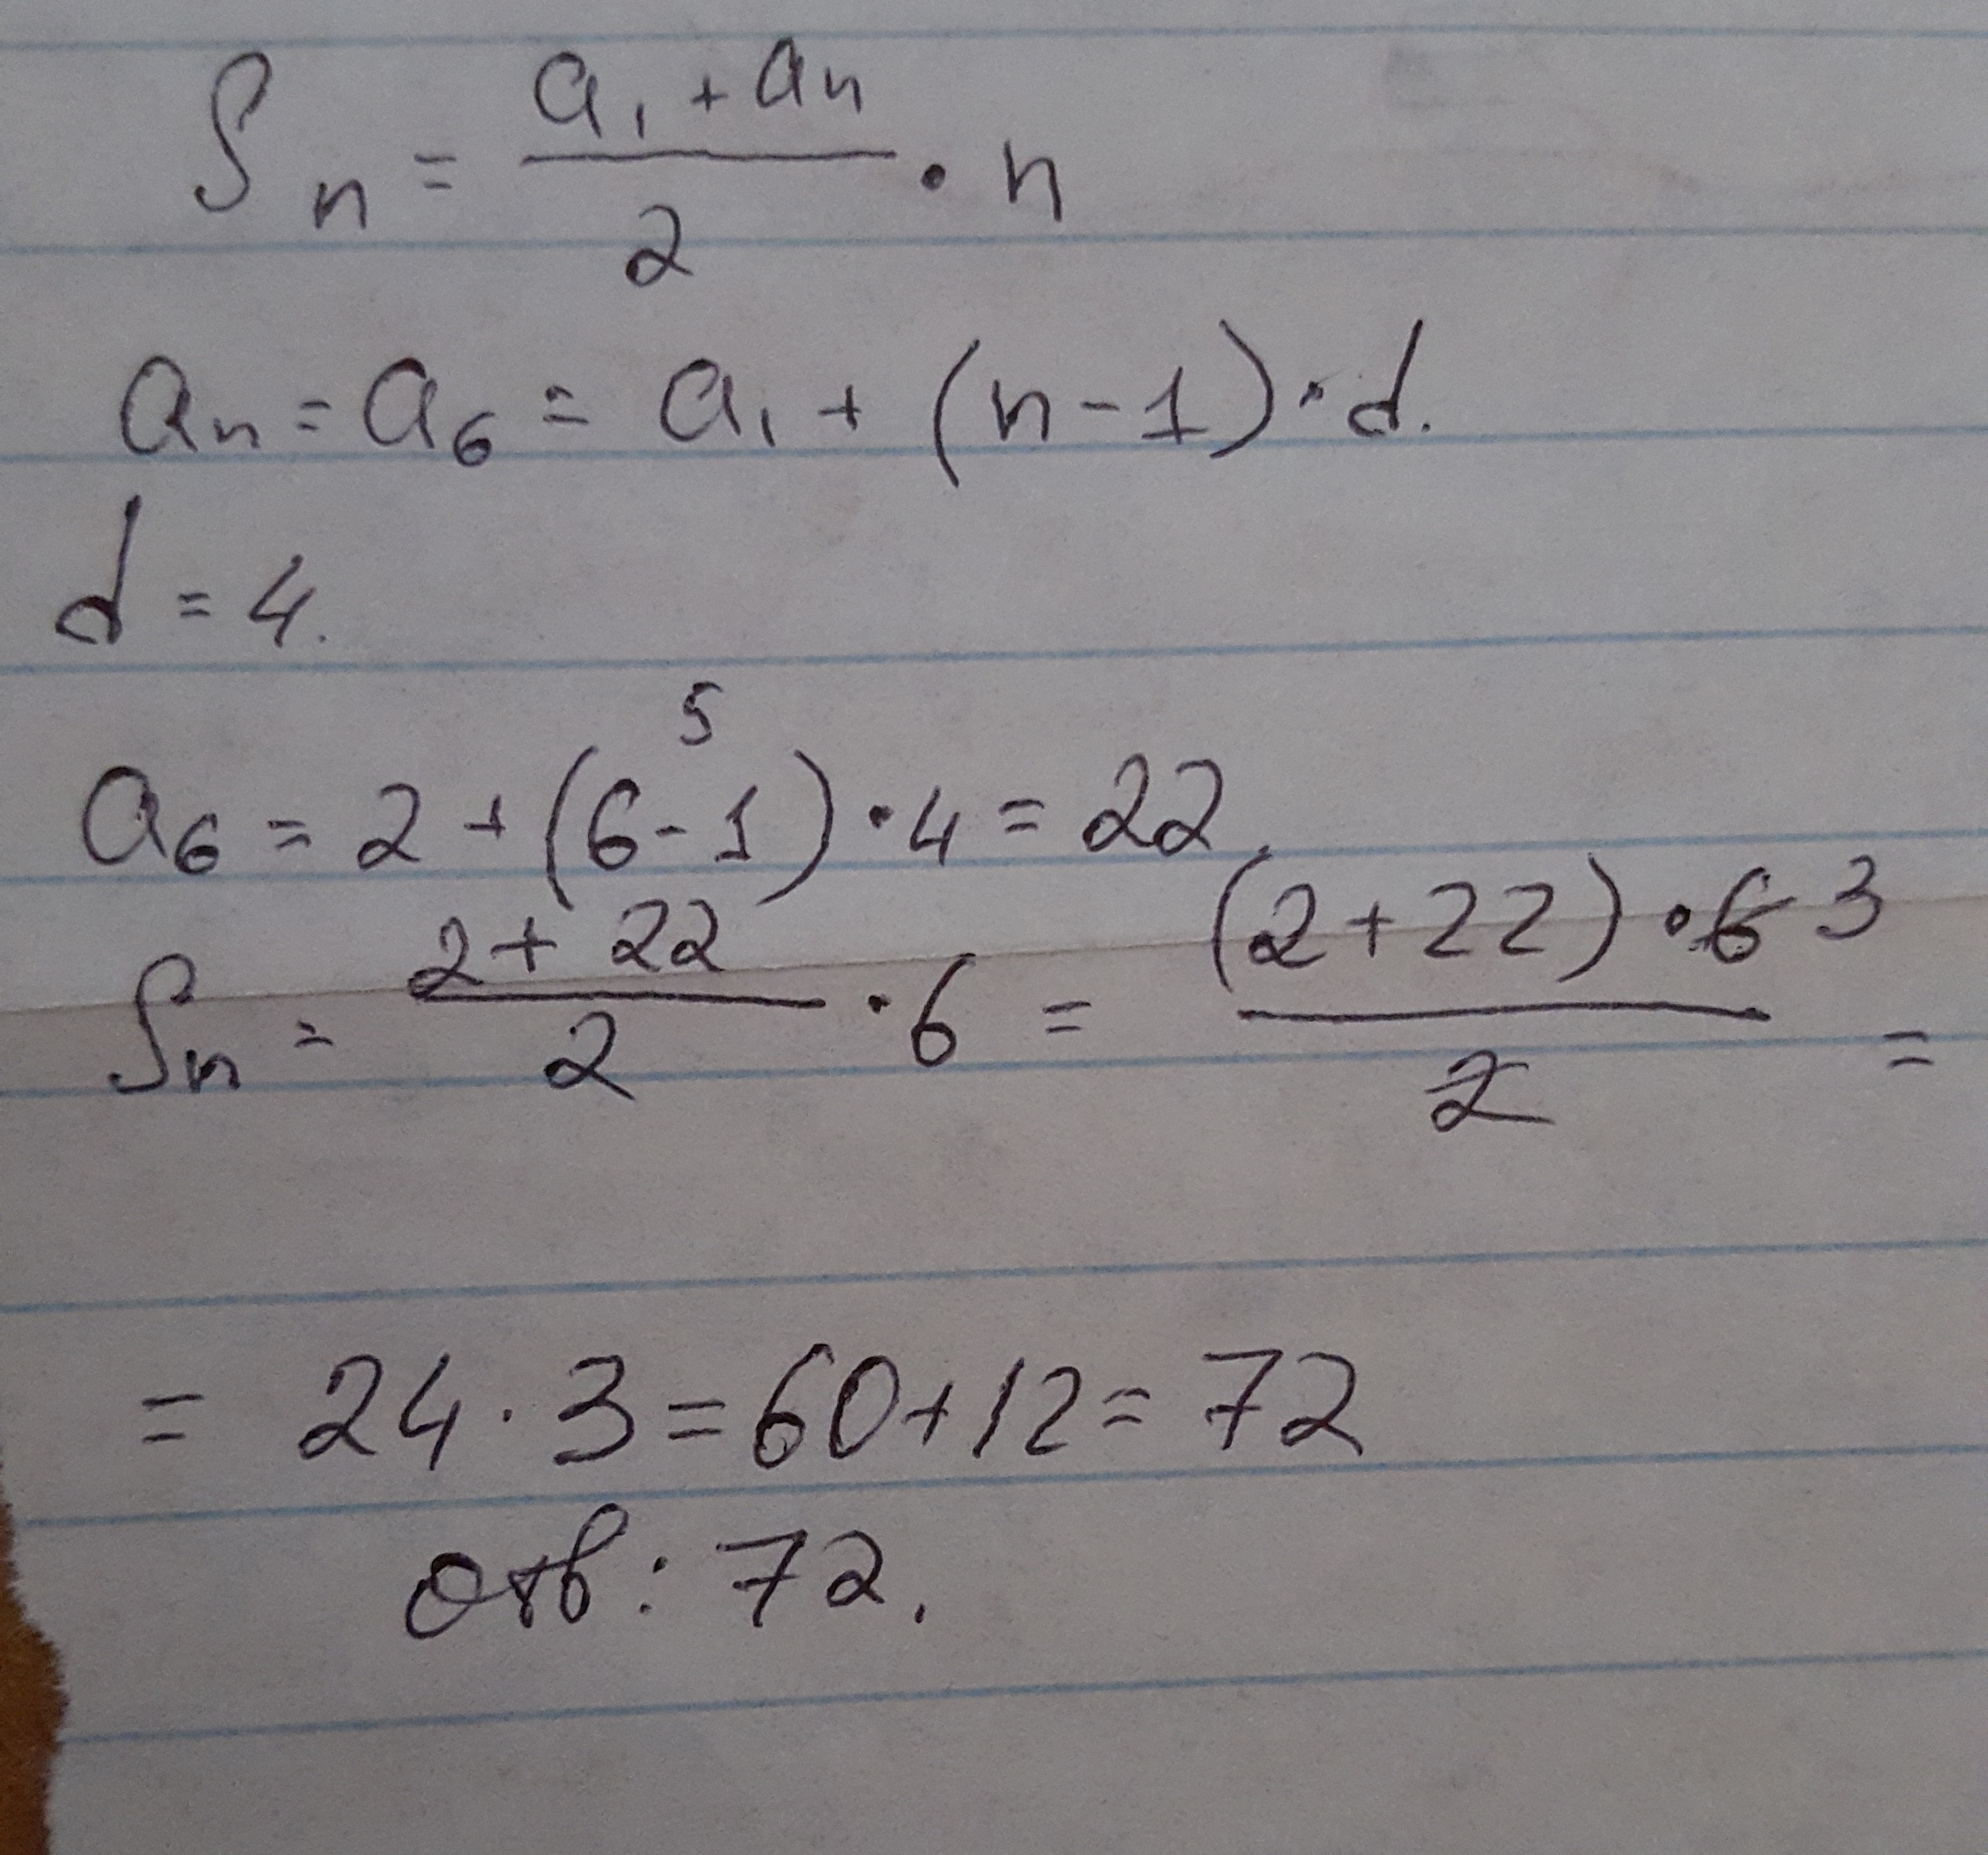 Sn = (a1 + an)/2 · n
an = a6 = a1 + (n-1) · d.
d = 4.
5
a6 = 2 + (6-1) · 4 = 22.
Sn = (2 + 22)/2 · 6 = ((2+22) · 6 3)/2 =
= 24 · 3 = 60+12 = 72
отв: 72.